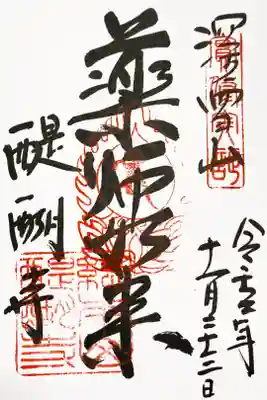 深雪山
令和元年
十一月二十三日
薬師如来
醍醐寺